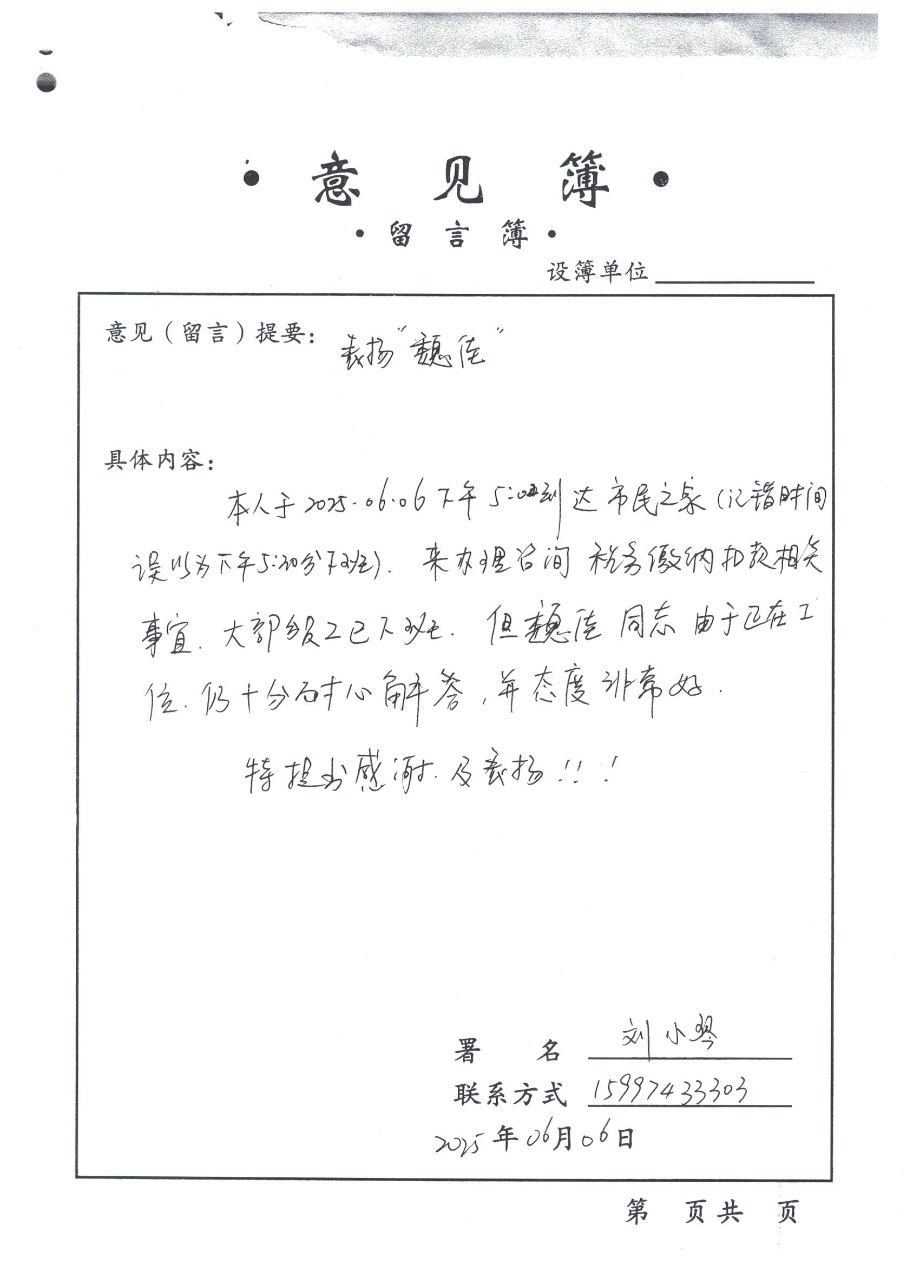 ·意见簿·
·留言簿·
设簿单位
意见（留言）提要：表扬“魏佳”
具体内容：
本人于2025.06.06下午5:00到达市民之家(记错时间
误以为下午5:30分下班). 来办理咨询税务缴纳扣费相关
事宜. 大部分员工已下班. 但魏佳同志由于还在工
位. 仍十分耐心解答, 并态度非常好.
特提出感谢.及表扬!!!
署 名 刘小琴
联系方式 15997433303
2025年06月06日
第 页共 页